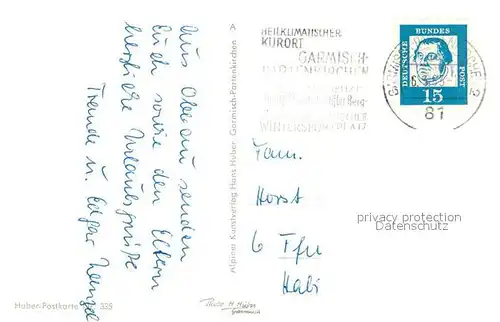 Aus Oberau senden
Euch sowie den Eltern
herzliche Urlaubsgrüße
Traude u. Edgar
A
Alpiner Kunstverlag Hans Huber · Garmisch-Partenkirchen
Huber-Postkarte 325
Photo H. Huber
Garmisch
HEILKLIMATISCHER
KURORT
GARMISCH-
PARTENKIRCHEN
WINTERSPORTPLATZ
81
DEUTSCHE
BUNDES
POST
15
Fam.
Horst
6 Ffm
privacy protection
Datenschutz